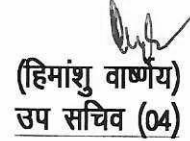 (हिमांशु वार्ष्णेय)
उप सचिव (04)